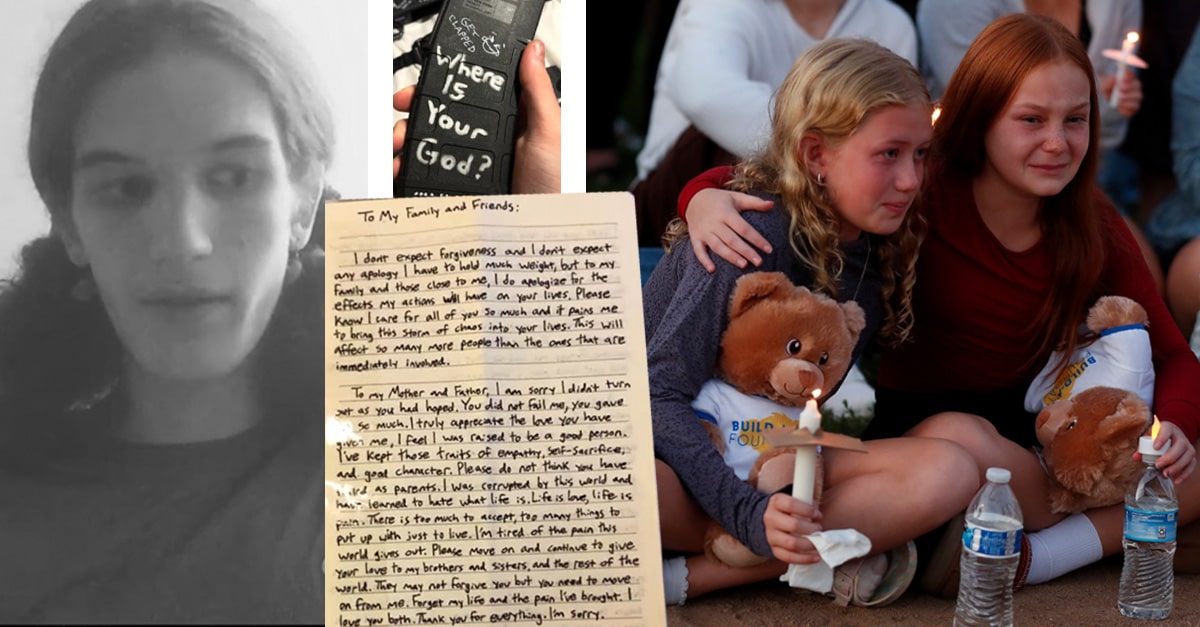 GET
CLAPPED
Where
Is
Your
God?
To My Family and Friends:
I dont expect forgiveness and I dont expect
any apology I have to hold much weight, but to my
family and those close to me, I do apologize for the
effects my actions will have on your lives. Please
know I care for all of you so much and it pains me
to bring this storm of chaos into your lives. This will
affect so many more people than the ones that are
immediately involved.
To my Mother and Father, I am sorry I didn't turn
out as you had hoped. You did not fail me, you gave
so much. I truly appreciate the love you have
given me, I feel I was raised to be a good person.
I've kept those traits of empathy, self-sacrifice,
and good character. Please do not think you have
as parents. I was corrupted by this world and
have learned to hate what life is. Life is love, life is
pain. There is too much to accept, too many things to
put up with just to live. I'm tired of the pain this
world gives out. Please move on and continue to give
your love to my brothers and sisters, and the rest of the
world. They may not forgive you but you need to move
on from me. Forget my life and the pain I've brought. I
love you both. Thank you for everything. I'm sorry.
BUILD
FOUN
BUILD